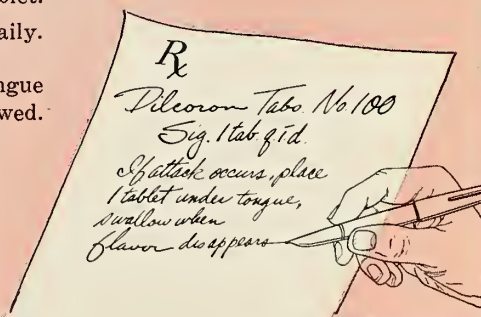 blet.
aily.
ngue
wed.
℞
Dilcoron Tabs. No. 100
Sig. 1 tab q.i.d.
If attack occurs, place
1 tablet under tongue,
swallow when
flavor disappears